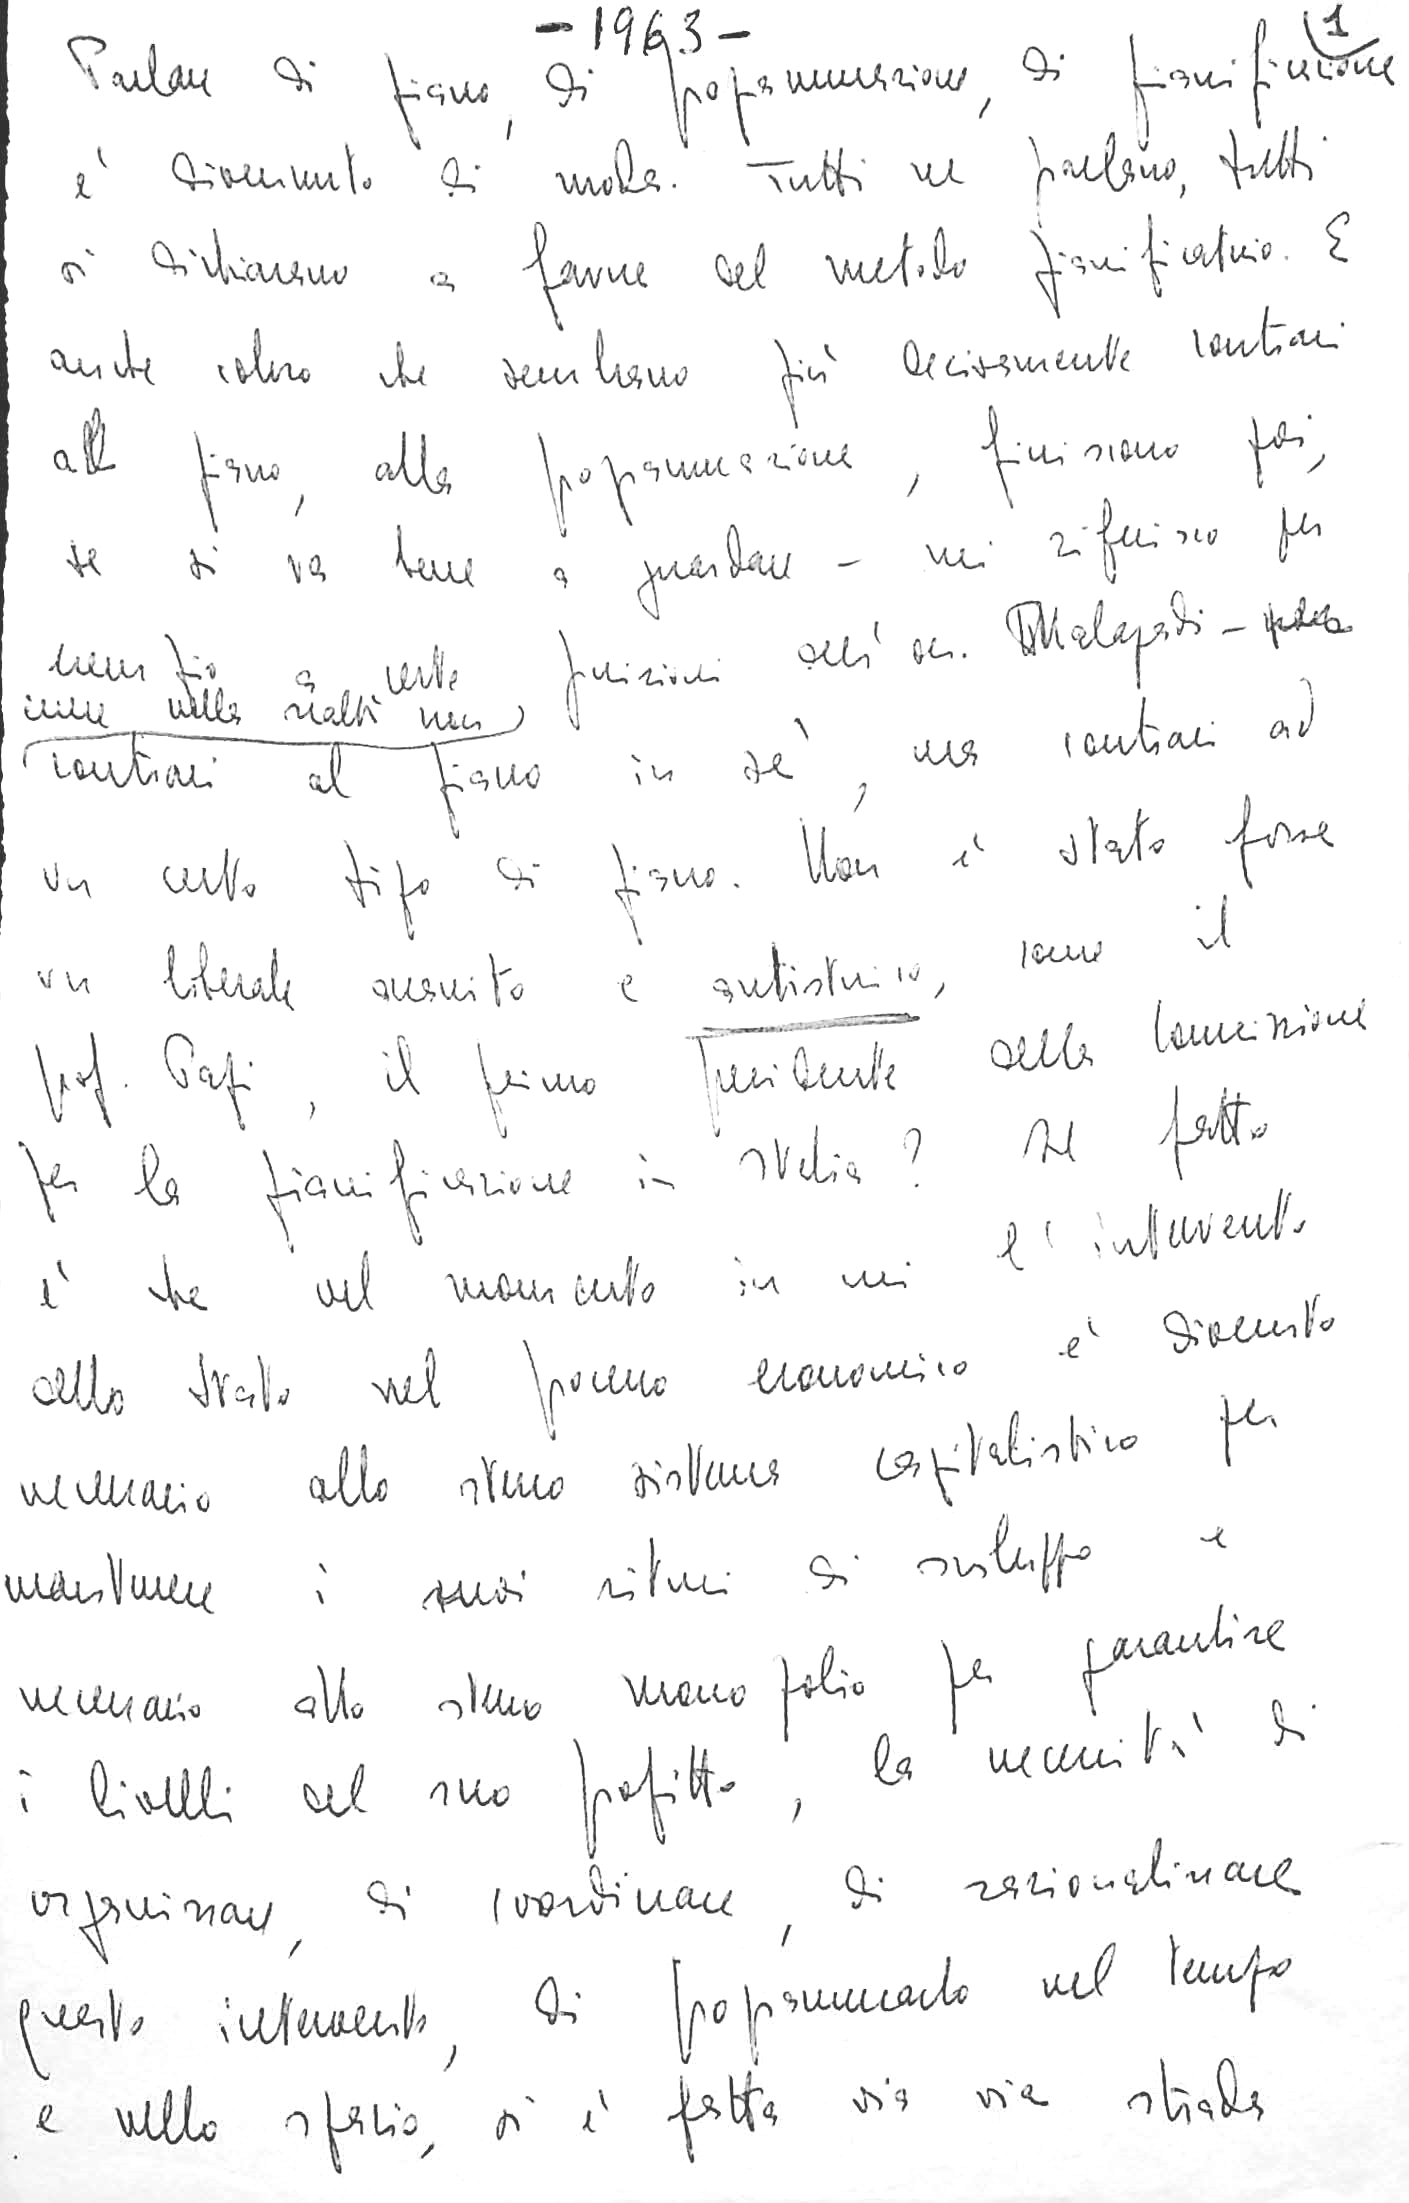 - 1963 -
1
Parlare di piano, di programmazione, di pianificazione
e' divenuto di moda. Tutti ne parlano, tutti
si dichiarano a favore del metodo pianificatorio. E
anche coloro che sembrano più decisamente contrari
al piano, alla programmazione, finiscono poi,
se si va bene a guardare - mi riferisco per
esempio a certe posizioni dell'on. Malagodi -
essere nella realtà non
contrari al piano in sè, ma contrari ad
un certo tipo di piano. Non è stato forse
un liberale squisito e antistorico, come il
prof. Papi, il primo presidente della Commissione
per la pianificazione in Italia? Il fatto
è che nel momento in cui l'intervento
dello Stato nel processo economico e' divenuto
necessario allo stesso sistema capitalistico per
mantenere i suoi ritmi di sviluppo e
necessario allo stesso monopolio per garantire
i livelli del suo profitto, la necessità di
organizzare, di coordinare, di razionalizzare
questo intervento, di programmarlo nel tempo
e nello spazio, si è fatta via via strada